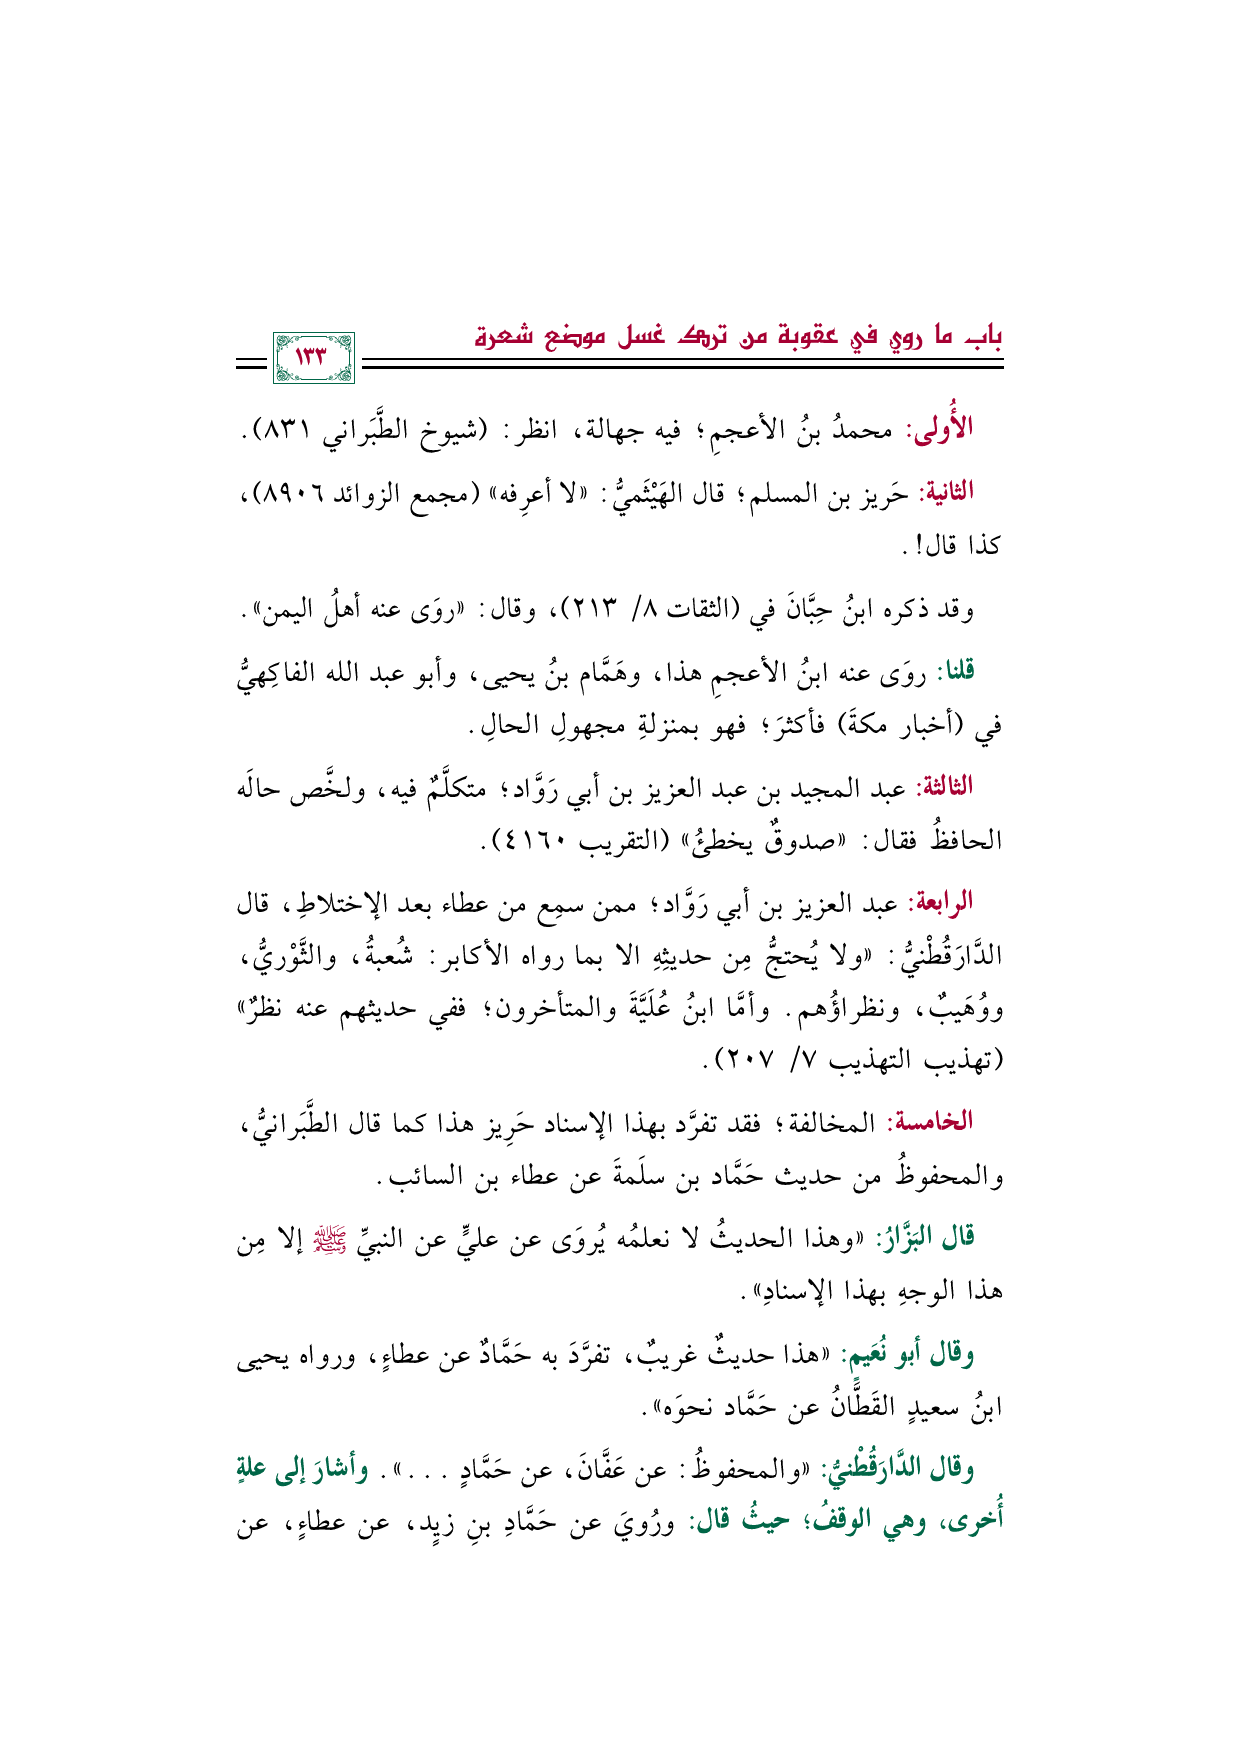 باب ما روي في عقوبة من ترك غسل موضع شعرة
١٣٣
الأُولى: محمدُ بنُ الأعجمِ؛ فيه جهالة، انظر: (شيوخ الطَّبَراني ٨٣١).
الثانية: حَريز بن المسلم؛ قال الهَيْثَميُّ: «لا أعرِفه» (مجمع الزوائد ٨٩٠٦)،
كذا قال!.
وقد ذكره ابنُ حِبَّانَ في (الثقات ٨/ ٢١٣)، وقال: «روَى عنه أهلُ اليمن».
قلنا: روَى عنه ابنُ الأعجمِ هذا، وهَمَّام بنُ يحيى، وأبو عبد الله الفاكِهيُّ
في (أخبار مكةَ) فأكثرَ؛ فهو بمنزلةِ مجهولِ الحالِ.
الثالثة: عبد المجيد بن عبد العزيز بن أبي رَوَّاد؛ متكلَّمٌ فيه، ولخَّص حالَه
الحافظُ فقال: «صدوقٌ يخطئُ» (التقريب ٤١٦٠).
الرابعة: عبد العزيز بن أبي رَوَّاد؛ ممن سمِع من عطاء بعد الإختلاطِ، قال
الدَّارَقُطْنيُّ: «ولا يُحتجُّ مِن حديثِهِ الا بما رواه الأكابر: شُعبةُ، والثَّوْريُّ،
ووُهَيبٌ، ونظراؤُهم. وأمَّا ابنُ عُلَيَّةَ والمتأخرون؛ ففي حديثهم عنه نظرٌ»
(تهذيب التهذيب ٧/ ٢٠٧).
الخامسة: المخالفة؛ فقد تفرَّد بهذا الإسناد حَرِيز هذا كما قال الطَّبَرانيُّ،
والمحفوظُ من حديث حَمَّاد بن سلَمةَ عن عطاء بن السائب.
قال البَزَّارُ: «وهذا الحديثُ لا نعلمُه يُروَى عن عليٍّ عن النبيِّ ﷺ إلا مِن
هذا الوجهِ بهذا الإسنادِ».
وقال أبو نُعَيمٍ: «هذا حديثٌ غريبٌ، تفرَّدَ به حَمَّادٌ عن عطاءٍ، ورواه يحيى
ابنُ سعيدٍ القَطَّانُ عن حَمَّاد نحوَه».
وقال الدَّارَقُطْنيُّ: «والمحفوظُ: عن عَفَّانَ، عن حَمَّادٍ . . .». وأشارَ إلى علةٍ
أُخرى، وهي الوقفُ؛ حيثُ قال: ورُويَ عن حَمَّادِ بنِ زيٍد، عن عطاءٍ، عن